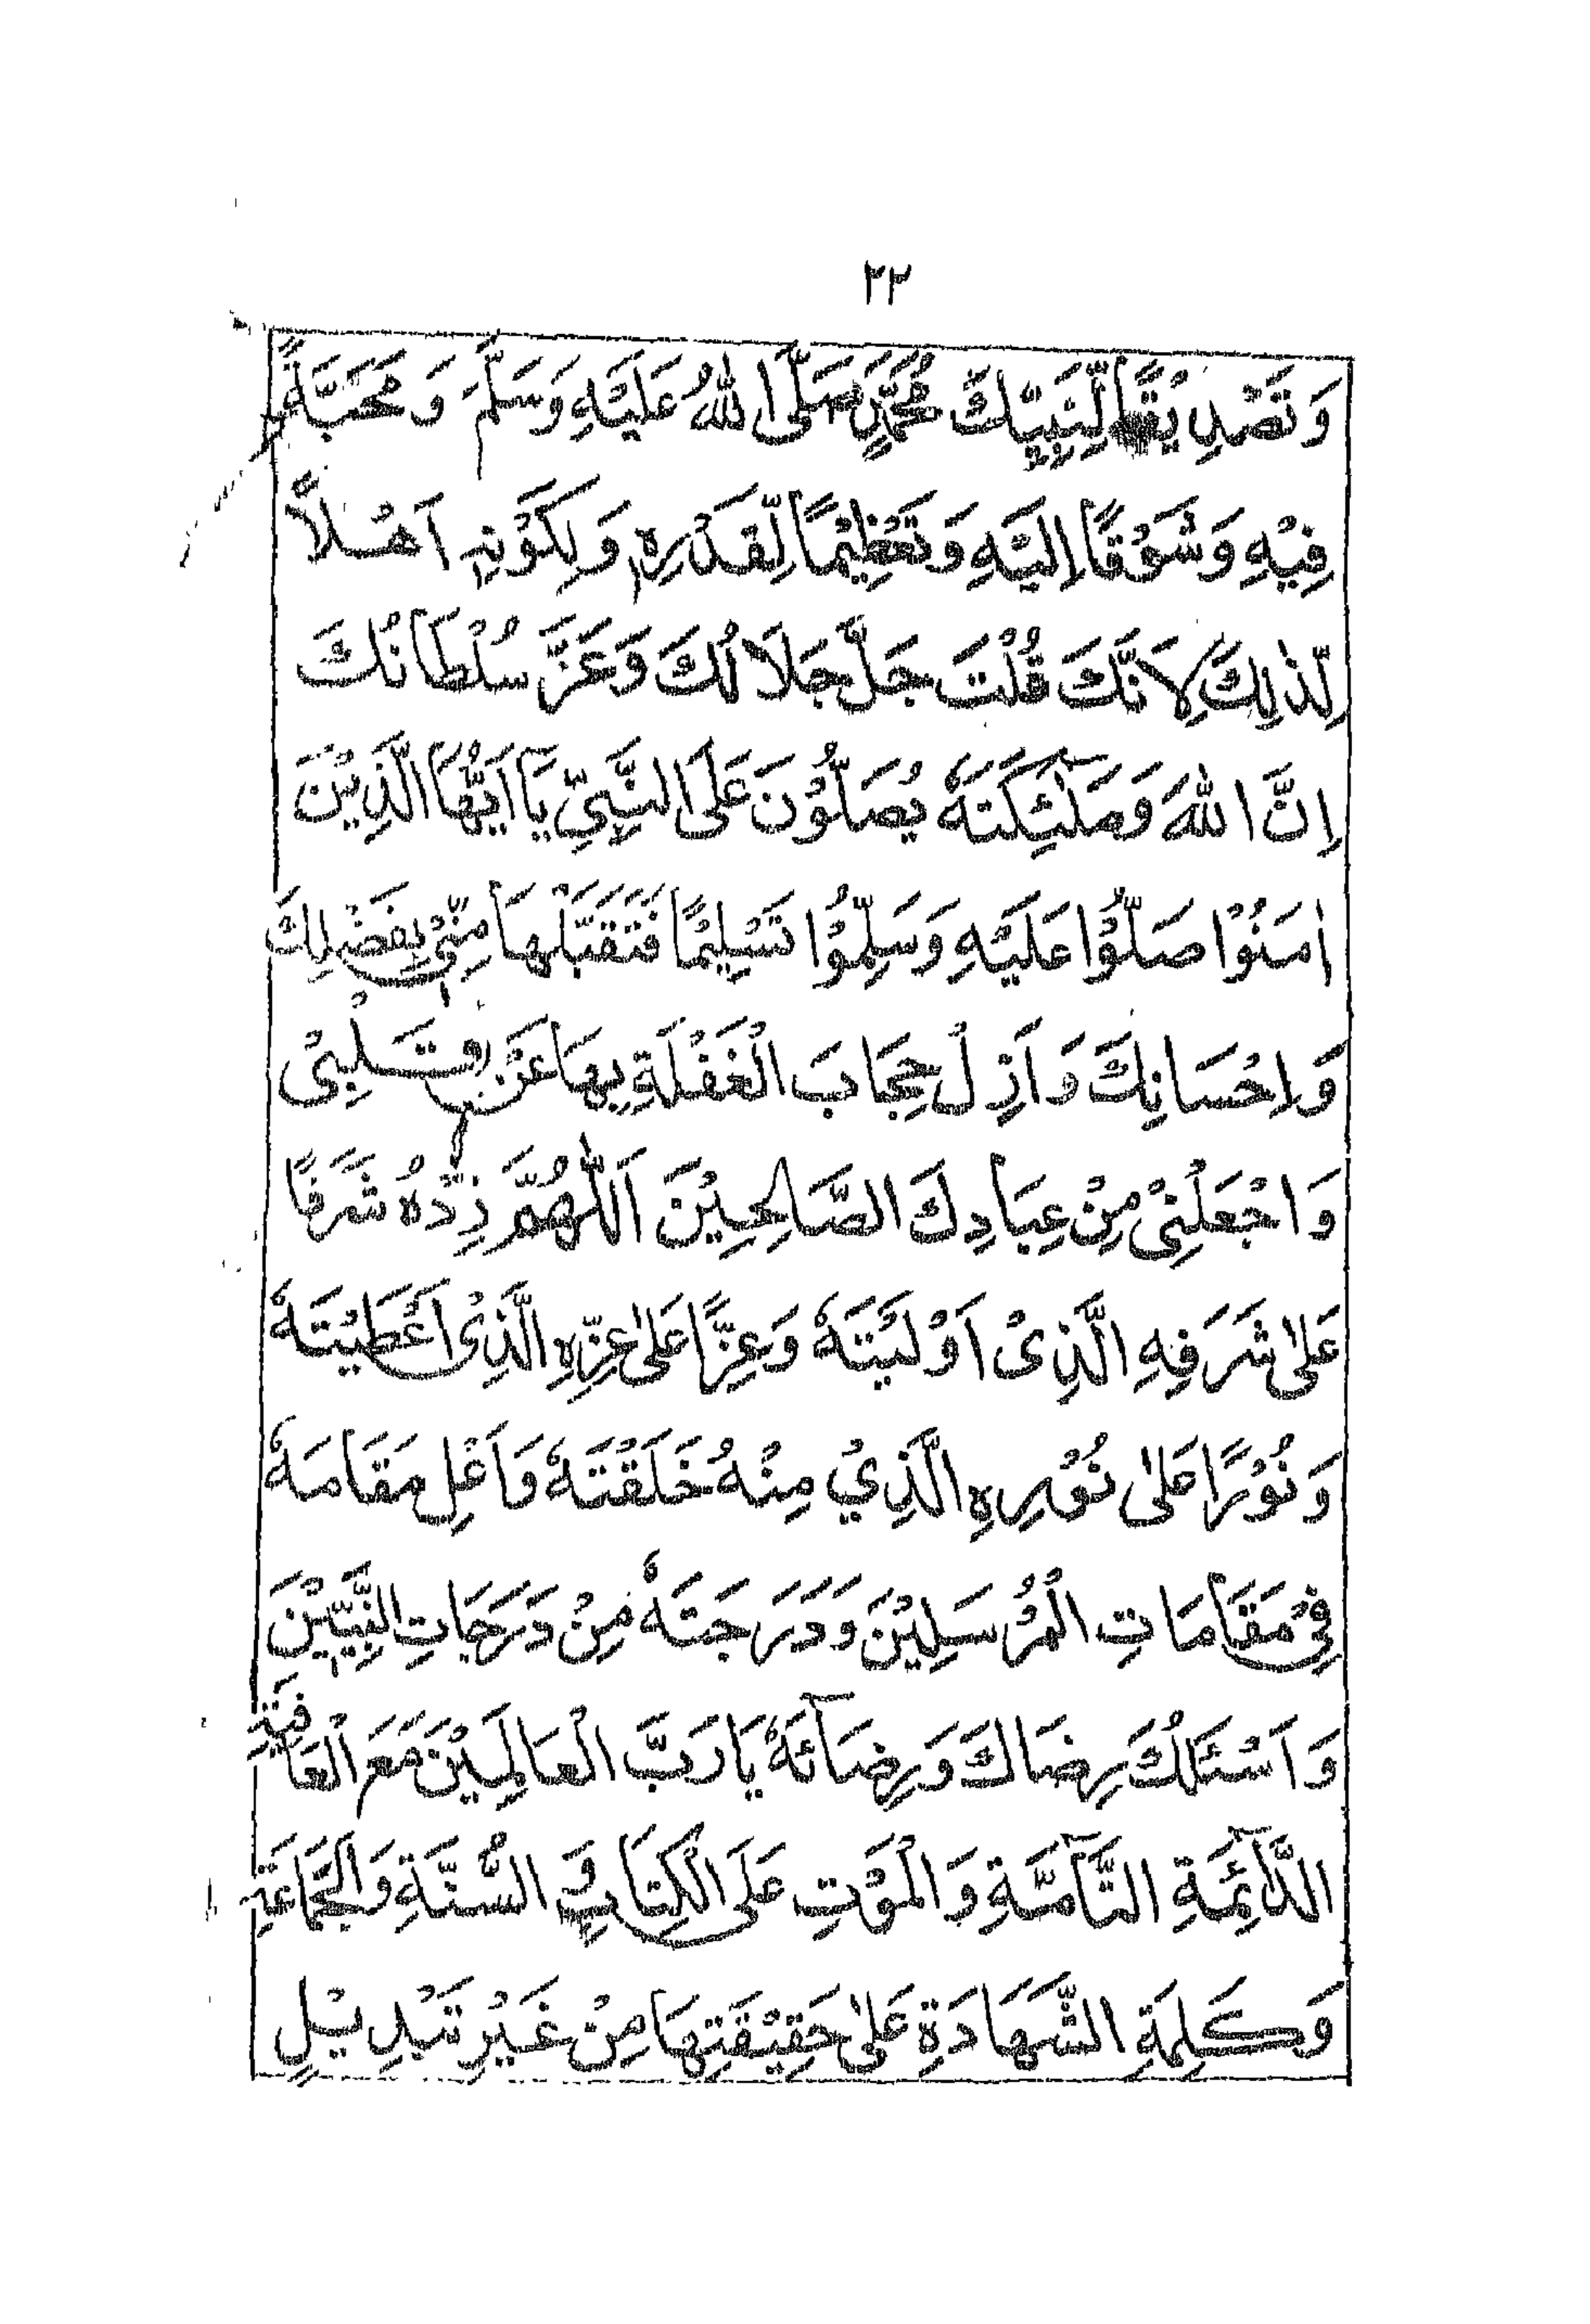 ٢٣
وَتَصْدِيْقًا لِّنَبِيِّكَ مُحَمَّدٍ صَلَّى اللهُ عَلَيْهِ وَسَلَّمَ وَ مَحَبَّةً
فِيْهِ وَشَوْقًا اِلَيْهِ وَتَعْظِيْمًا لِّقَدْرِهٖ وَلِكَوْنِهٖ اَهْلًا
لِّذٰلِكَ لِاَنَّكَ قُلْتَ جَلَّ جَلَالُكَ وَعَزَّ سُلْطَانُكَ
اِنَّ اللهَ وَمَلٰٓئِكَتَهٗ يُصَلُّوْنَ عَلَى النَّبِيِّ يَا اَيُّهَا الَّذِيْنَ
اٰمَنُوْا صَلُّوْا عَلَيْهِ وَسَلِّمُوْا تَسْلِيْمًا فَتَقَبَّلْهَا مِنِّيْ بِفَضْلِكَ
وَاِحْسَانِكَ وَاَزِلْ حِجَابَ الْغَفْلَةِ بِهَا عَنْ قَلْبِىْ
وَاجْعَلْنِىْ مِنْ عِبَادِكَ الصَّالِحِيْنَ اَللّٰهُمَّ زِدْهُ شَرَفًا
عَلىٰ شَرَفِهِ الَّذِىْ اَوْلَيْتَهٗ وَعِزًّا عَلىٰ عِزِّهِ الَّذِىْ اَعْطَيْتَهٗ
وَنُوْرًا عَلىٰ نُوْرِهِ الَّذِيْ مِنْهُ خَلَقْتَهٗ وَاَعْلِ مَقَامَهٗ
فِيْ مَقَامَاتِ الْمُرْسَلِيْنَ وَدَرَجَتَهٗ مِنْ دَرَجَاتِ النَّبِيِّيْنَ
وَاَسْئَلُكَ رِضَاكَ وَرِضَآئَهٗ يَا رَبَّ الْعَالَمِيْنَ مَعَ الْعَافِيَةِ
الدَّآئِمَةِ التَّآمَّةِ وَالْمَوْتِ عَلَى الْكِتَابِ وَ السُّنَّةِ وَالْجَمَاعَةِ
وَكَلِمَةِ الشَّهَادَةِ عَلىٰ حَقِيْقَتِهَا مِنْ غَيْرِ تَبْدِيْلٍ